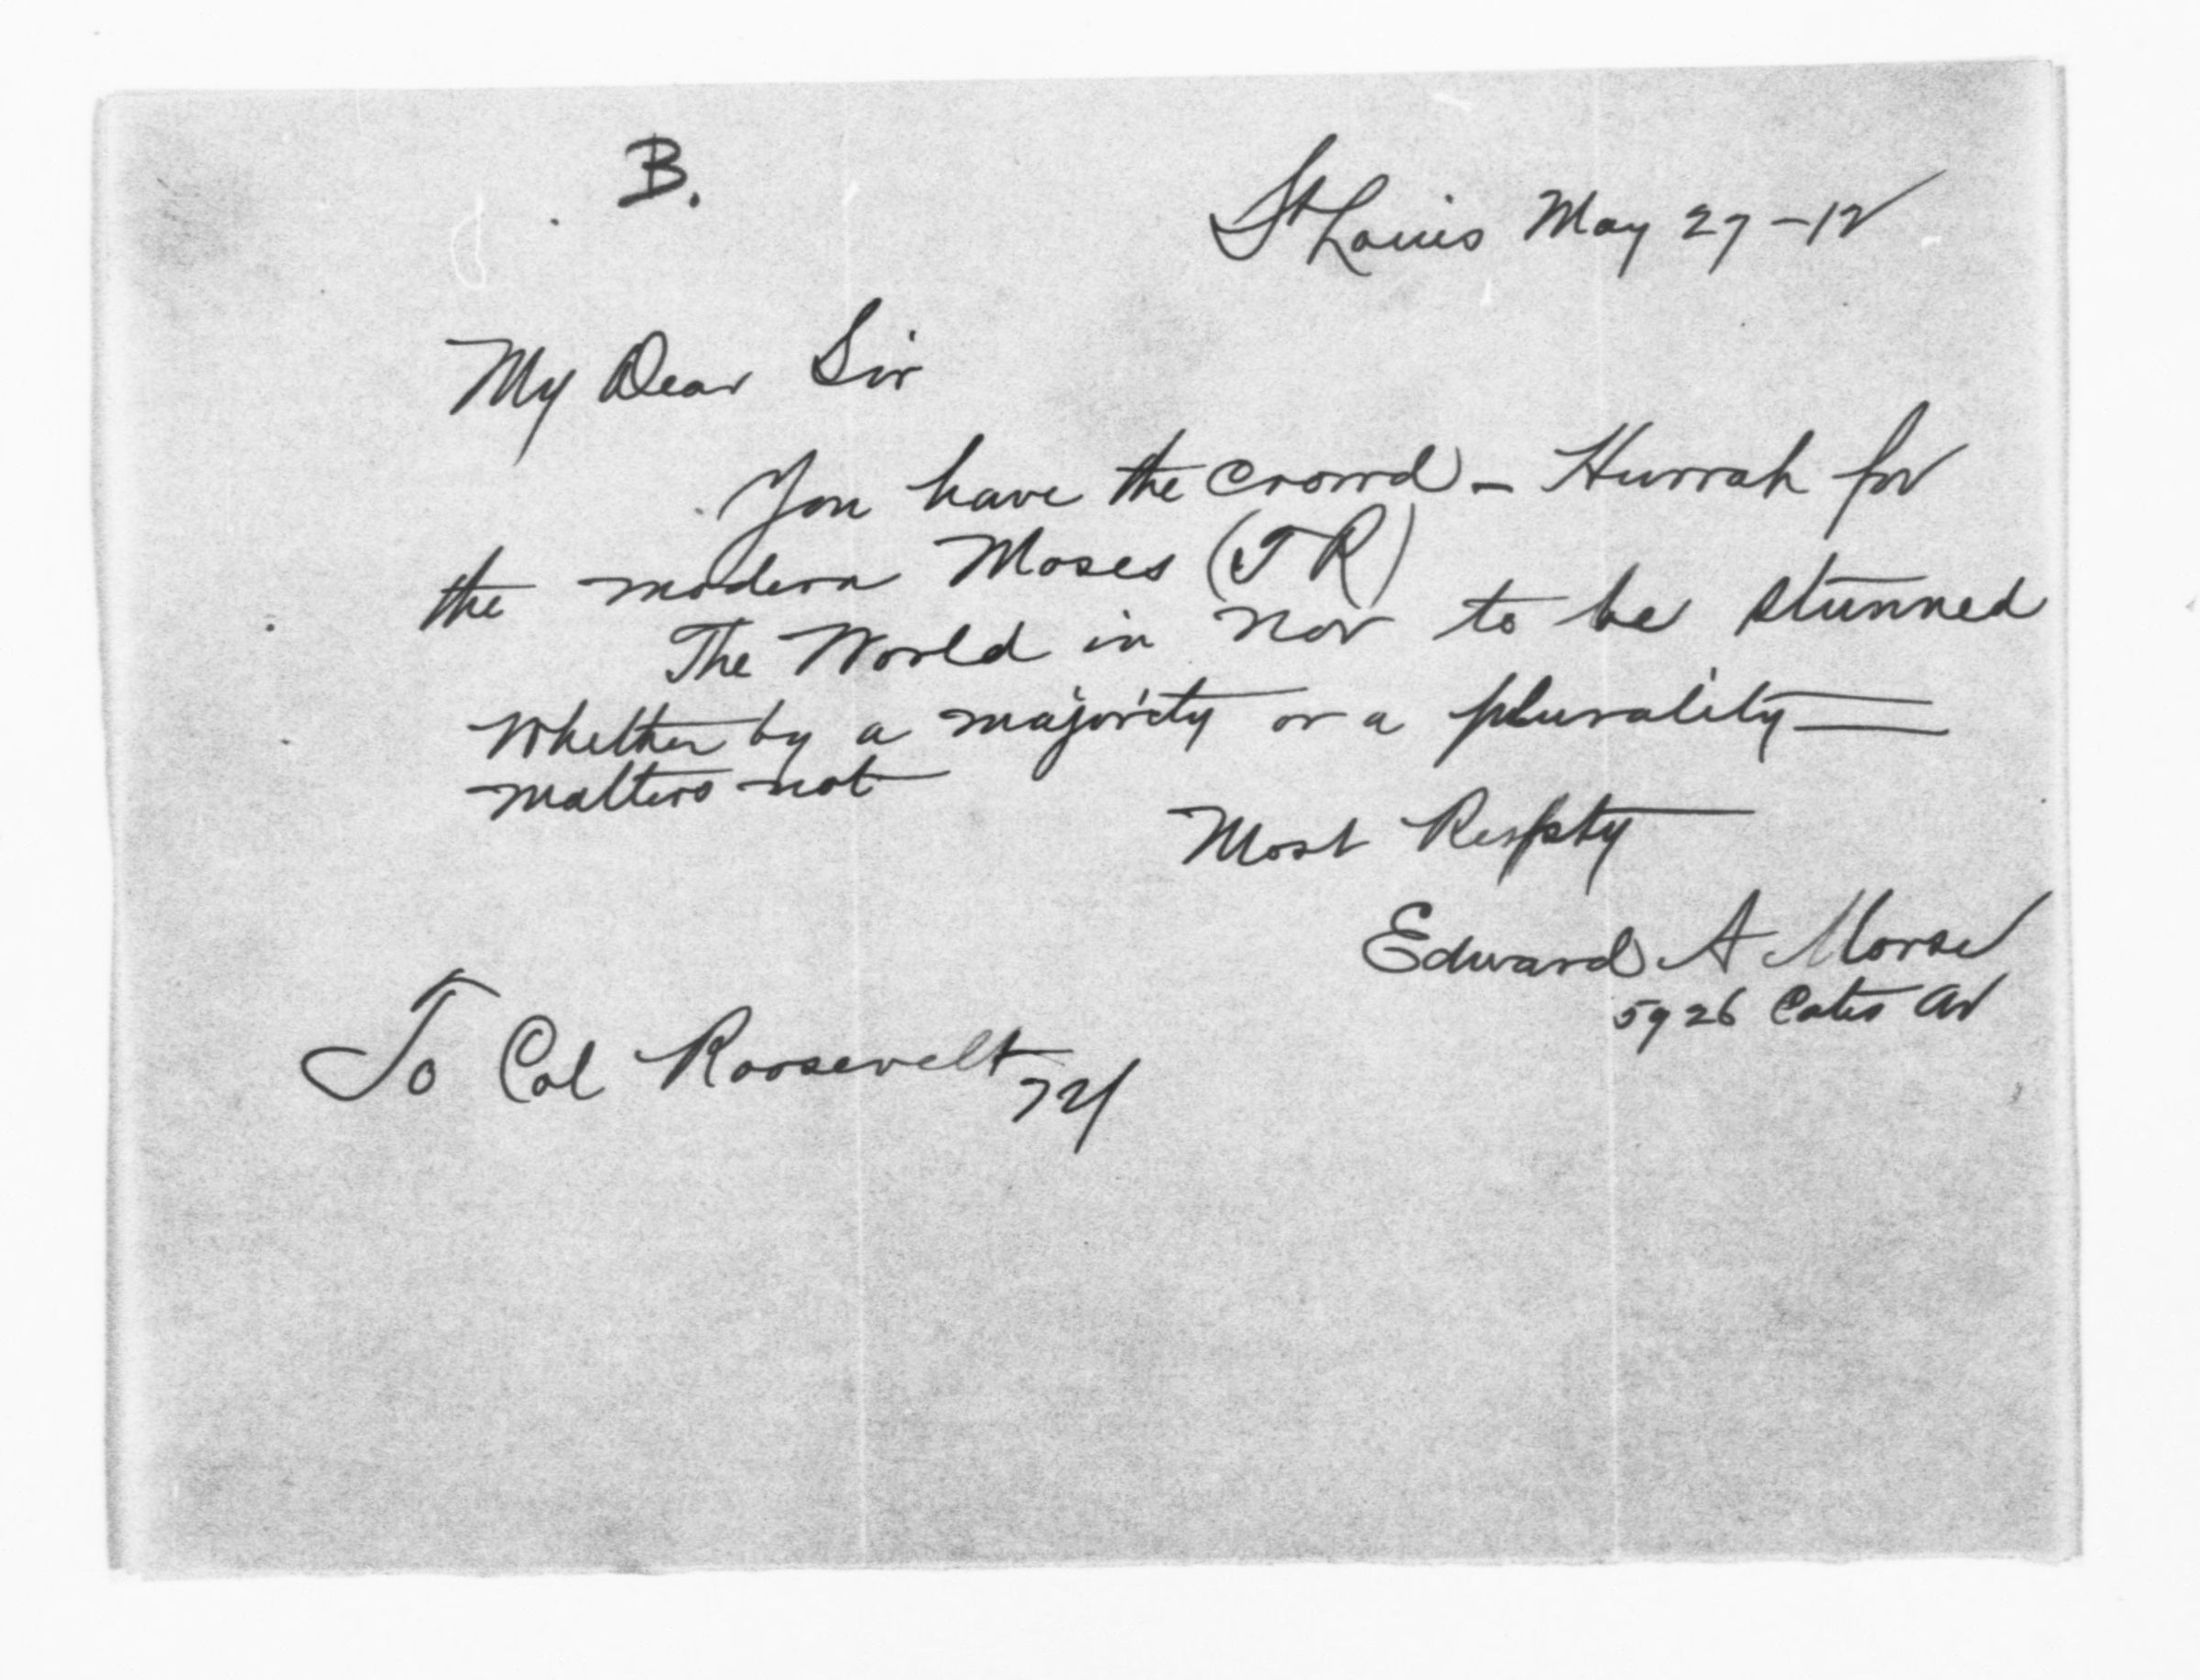 B.
St Louis May 27-12
My Dear Sir
You have the crowd - Hurrah for
the modern Moses (TR)
The World in Nov to be stunned
whether by a majority or a plurality
matters not
Most Respty
Edward A Morse
5926 Cates Av
To Col Roosevelt